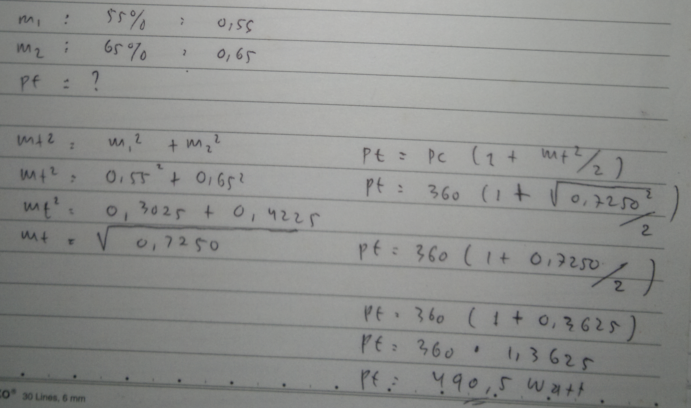 m₁ : 55% : 0,55
m₂ : 65% : 0,65
pt = ?
mt² : m₁² + m₂²
mt² : 0,55² + 0,65²
mt² : 0,3025 + 0,4225
mt = √0,7250
Pt = Pc (1 + mt²/2)
Pt = 360 (1 + √0,7250²/2)
Pt = 360 (1 + 0,7250/2)
Pt = 360 (1 + 0,3625)
Pt = 360 · 1,3625
Pt = 490,5 Watt
30 Lines, 6 mm